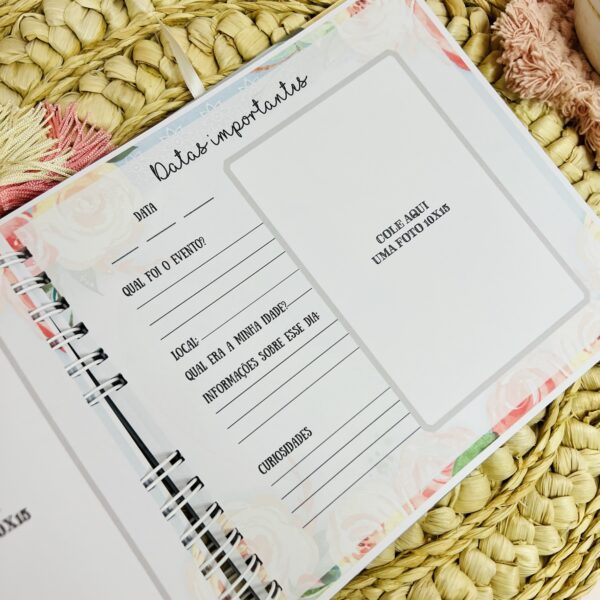 Datas importantes
DATA
QUAL FOI O EVENTO?
LOCAL:
QUAL ERA A MINHA IDADE?
INFORMAÇÕES SOBRE ESSE DIA:
CURIOSIDADES
COLE AQUI
UMA FOTO 10X15
0X15